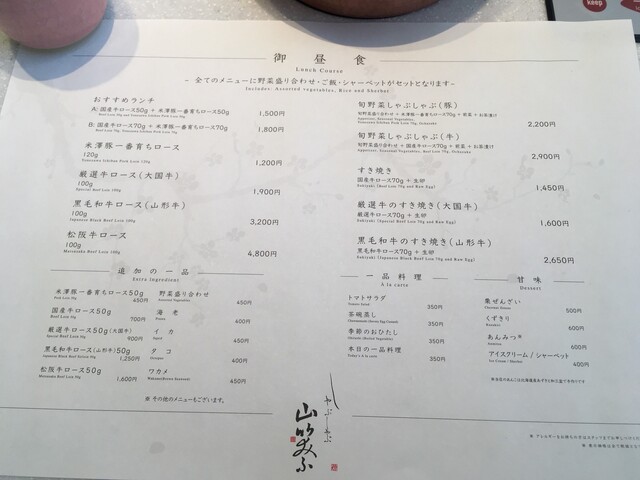 御昼食
Lunch Course
- 全てのメニューに野菜盛り合わせ・ご飯・シャーベットがセットとなります-
Includes. Assorted vegetables, Rice and Sherbet
おすすめランチ
A: 国産牛ロース50g + 米澤豚一番育ちロース50g
1,500円
B: 国産牛ロース70g + 米澤豚一番育ちロース70g
1,800円
米澤豚一番育ちロース
120g
1,200円
Yonezawa Ichiban Pork Loin 120g
厳選牛ロース(大国牛)
100g
1,900円
Special Beef Loin 100g
黒毛和牛ロース(山形牛)
100g
3,200円
Japanese Black Beef Loin 100g
松阪牛ロース
100g
4,800円
Matsusaka Beef Loin 100g
追加の一品
Extra ingredient
米澤豚一番育ちロース50g
Pork Loin 50g
450円
国産牛ロース50g
Beef Loin 50g
700円
厳選牛ロース50g(大国牛)
Special Beef Loin 50g
900円
黒毛和牛ロース(山形牛)50g
Japanese Black Beef Sirloin 50g
1,250円
松阪牛ロース50g
Matsusaka Beef Loin 50g
1,600円
野菜盛り合わせ
Assorted Vegetables
450円
海老
Prawn
400円
イカ
Squid
450円
タコ
Octopus
400円
ワカメ
Wakame(Brown Seaweed)
450円
※ その他のメニューもございます。
旬野菜しゃぶしゃぶ(豚)
旬野菜盛り合わせ + 米澤豚一番育ちロース70g + 前菜 + お茶漬け
2,200円
旬野菜しゃぶしゃぶ(牛)
旬野菜盛り合わせ + 国産牛ロース70g + 前菜 + お茶漬け
Appetizer, Seasonal Vegetables, Beef Loin 70g, Ochazuke
2,900円
すき焼き
国産牛ロース70g + 生卵
Sukiyaki (Beef Loin 70g and Raw Egg)
1,450円
厳選牛のすき焼き(大国牛)
厳選牛ロース70g + 生卵
Sukiyaki (Special Beef Loin 70g and Raw Egg)
1,600円
黒毛和牛のすき焼き(山形牛)
黒毛和牛ロース70g + 生卵
Sukiyaki (Japanese Black Beef Loin 70g and Raw Egg)
2,650円
一品料理
À la carte
トマトサラダ
Tomato Salad
350円
茶碗蒸し
350円
季節のおひたし
350円
本日の一品料理
Today's À la carte
350円
甘味
Dessert
栗ぜんざい
500円
くずきり
Kuzukiri
600円
あんみつ※
Anmitsu
600円
アイスクリーム / シャーベット
Ice Cream / Sherbet
400円
しゃぶしゃぶ
山笑ふ
keep